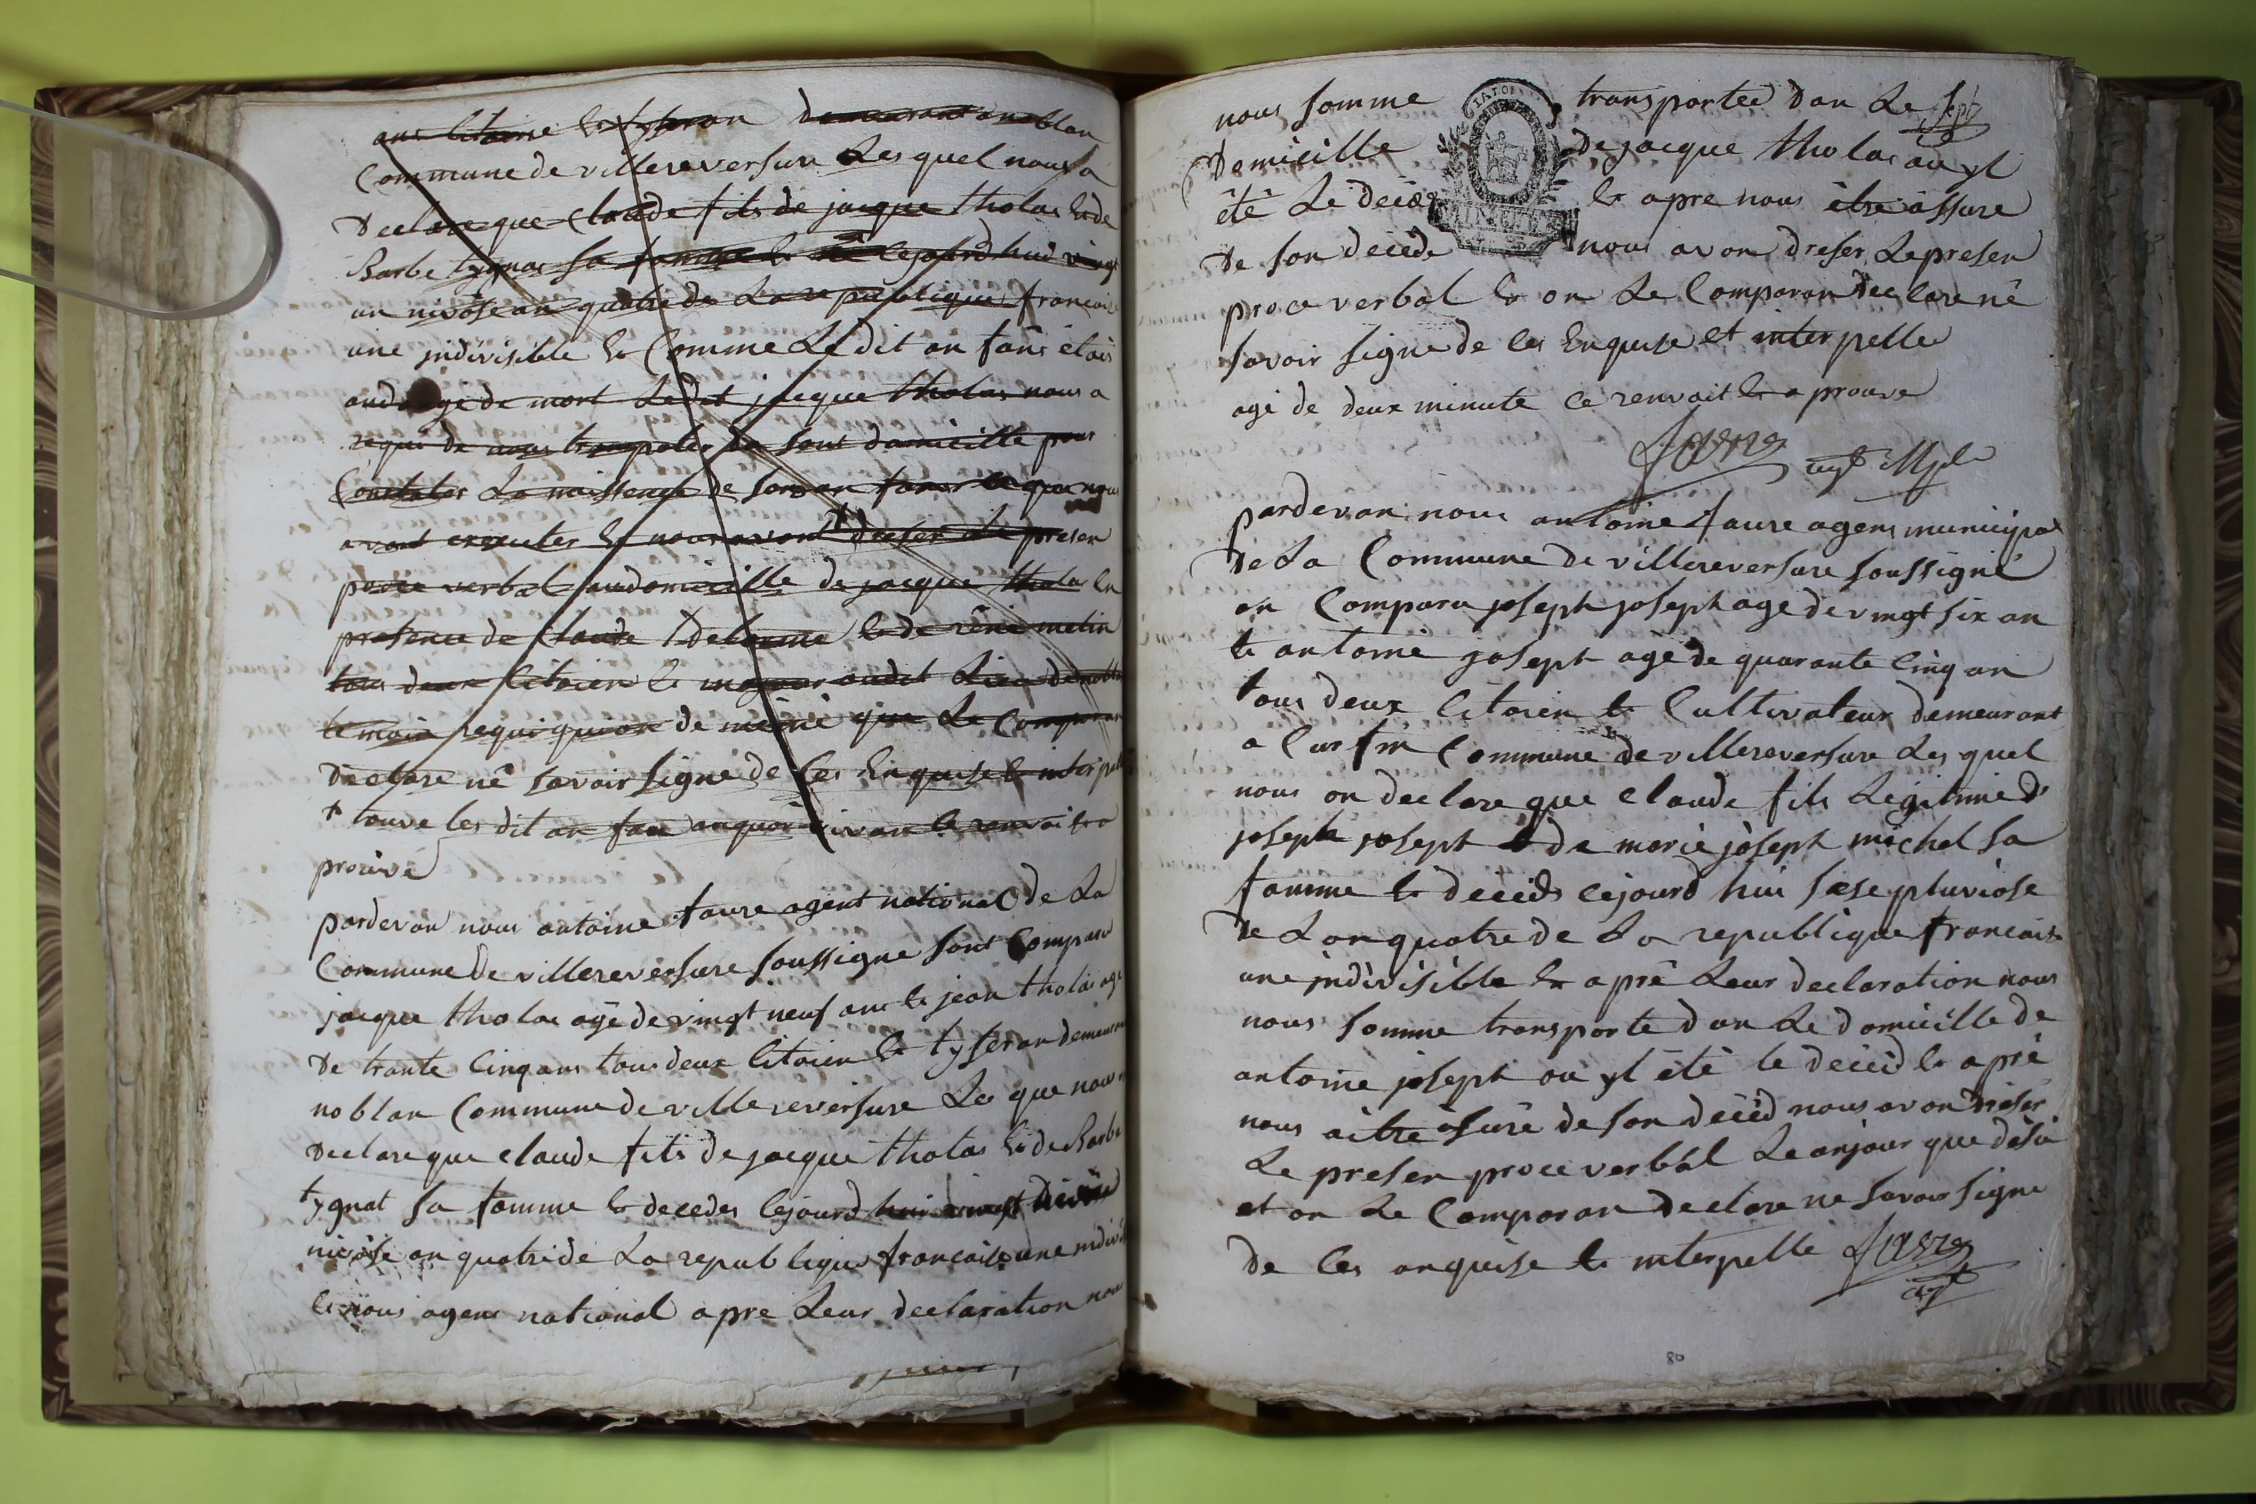 ans Citoiens et tyseran demeurant a noblan
Commune de villereversure Les quel nous a
Declare que Claude fils de jacque tholas et de
Barbe tygnat sa famme et né cejourd hui vingt
un nivôse an quatre de La republique francaise
une jndivisible et Comme Ledit an fans étais
audangé de mort Ledit jacque tholas nous a
requi de nous transpoter da sont damicille pour
Constater La naissence de sonan fans ce que nous
avont executer et nous avont dreser Le presen
proce verbal audomicille de jacque tholas en
presence de Claude Delorme et de rênê metin
tous deux Citoiens et majeur audit Lieu de nobl
temoin requi quion de même que Le Comparan
Declare nê savoir signe de Ces Enquise et interpelle
touve les dit an fan anquore vivan le renvoit a
prouvé
pardevan nous antoine faure agent national de La
Commune de villereversure soussigne sont Comparu
jacque tholas agê de vingt neuf ans et jean tholas age
De trante Cinq ans tous deux Citoien et tyseran demeuran
noblan Commune de villereversure Les que nous
Declare que claude fils de jacque tholas et de Barbe
tygnat sa famme et decedes Cejourd hui vingt
nivôse an quatre de La republique francaise une indivi
et nous agens national apre Leur declaration nous
nous somme transportee dan Le
Domicille de jacque tholas au yl
êtê Le decéd et apre nous être assure
De son decede nous avon dreser Le presen
proce verbal et on Le Comparan declare nê
savoir signe de Ces Enquise et interpelle
agé de deux minute Ce renvoit et aprouve
faure agt Mpl
pardevan nous antoine faure agens municipal
De La Commune de villereversure soussigné
on Comparu joseph joseph age de vingt six an
et antoine joseph agé de quarante Cinq an
tous deux Citoien et Cultivateur demeurant
a Curfin Commune de villereversure Les quel
nous on declare que claude fils Legitime d
joseph joseph et de marie joseph michel sa
famme et deced cejourd hui sæse pluviose
de L an quatre de La republique francaise
une jndivisible et aprê Leur declaration nous
nous somme transporte dan Le domicille de
antoine joseph ou yl êtê le deced et aprê
nous aitre asurê de son déced nous avon dresér
Le presen proce verbal Le anjour que désu
et on Le Comparan declare ne savoir signe
De Ces anquise et interpelle faure
agt
80